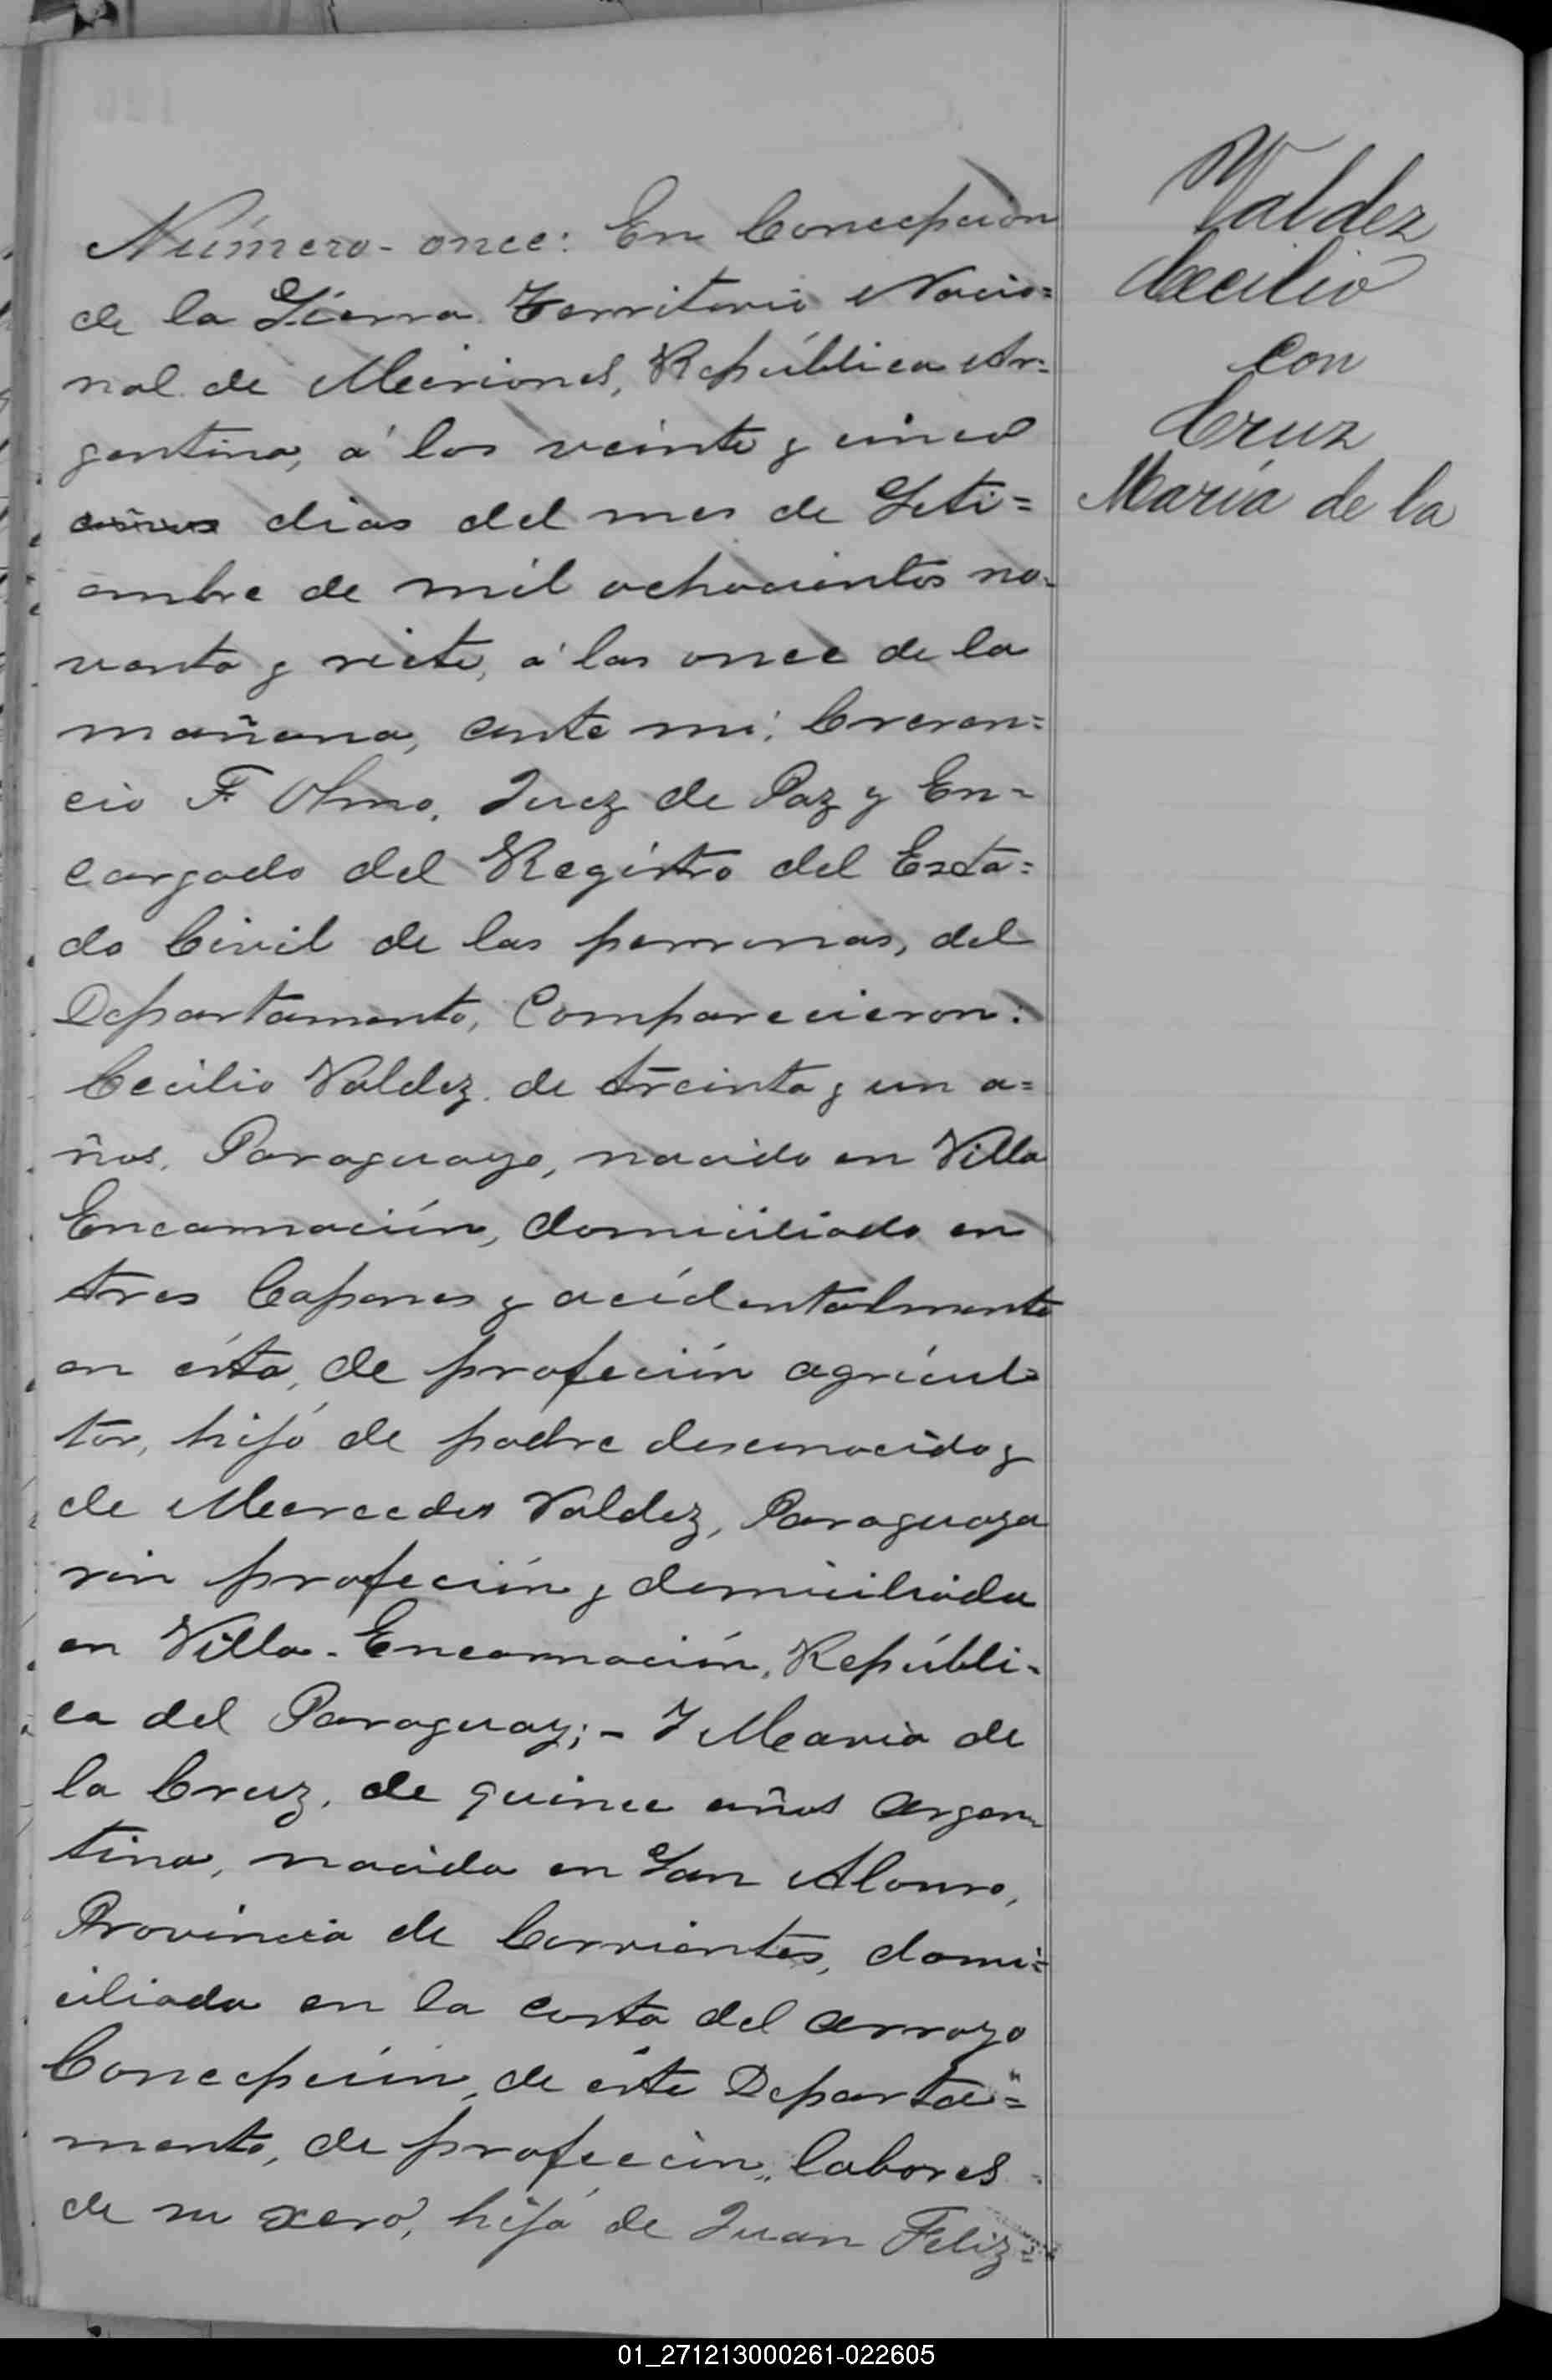 Número-once: En Concepcion
de la Sierra. Territorio Nacio=
nal de Misiones, República Ar=
gentina, á los veinte y cinco
años dias del mes de Seti=
embre de mil ochocientos no-
venta y siete, á las once de la
mañana, ante mi;
cio F. Olmo, Juez de Paz y En=
cargado del Registro del Esta=
do Civil de las personas, del
Departamento, Comparecieron:
Cecilio Valdez. de treinta y un a=
ños, Paraguayo, nacido en Villa
Encarnación, domiciliado en
tres Capones y acidentalmente
en ésta, de profeción agricul=
tor, hijo de padre desconocido y
de Mercedes Valdez, Paraguaya
sin profeción y domiciliada
en Villa-Encarnación, Repúbli-
ca del Paraguay;- Y Maria de
la Cruz, de quince años argen
tina, nacida en San Alonso,
Provincia de Corrientes, domi=
ciliada en la costa del arroyo
Concepción, de éste Departa=
mento, de profeción, labores
de su sexo, hija de Juan Feliz=
Valdez
Cecilio
con
Cruz
María de la
01_271213000261-022605